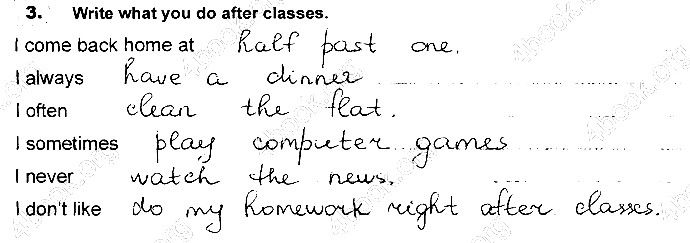 3. Write what you do after classes.
I come back home at half past one.
I always have a dinner
I often clean the flat.
I sometimes play computer games
I never watch the news.
I don't like do my homework right after classes.